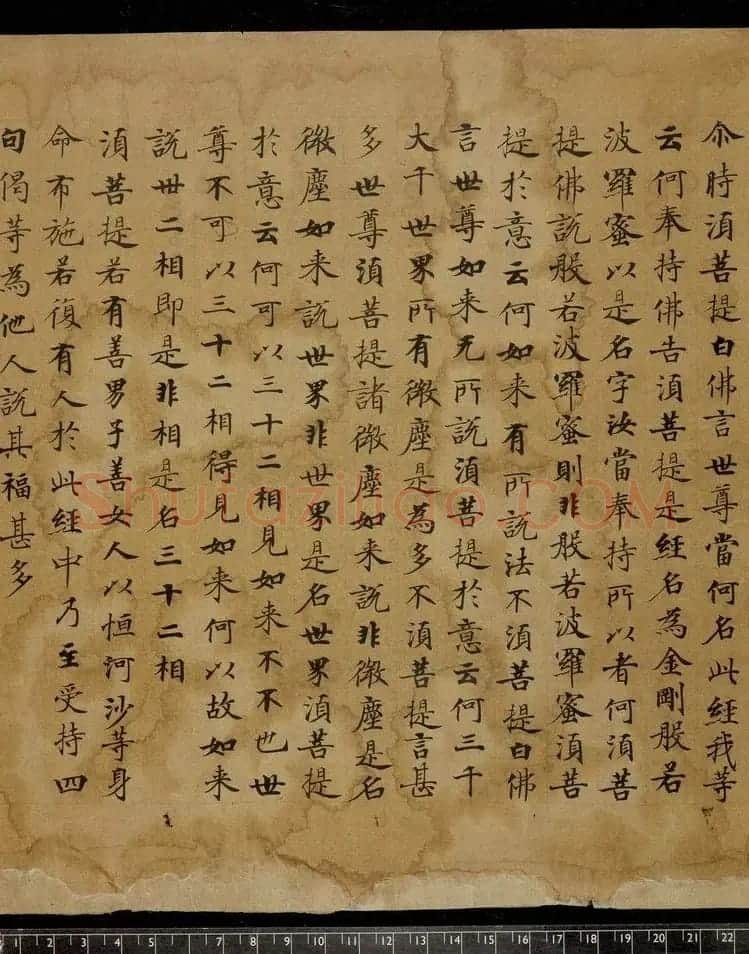 尒時湏菩提白佛言世尊當何名此經我等
云何奉持佛告湏菩提是經名為金剛般若
波羅蜜以是名字汝當奉持所以者何湏菩
提佛說般若波羅蜜則非般若波羅蜜湏菩
提於意云何如来有所說法不湏菩提白佛
言世尊如来无所說湏菩提於意云何三千
大千世界所有微塵是為多不湏菩提言甚
多世尊湏菩提諸微塵如来說非微塵是名
微塵如来說世界非世界是名世界湏菩提
於意云何可以三十二相見如来不不也世
尊不可以三十二相得見如来何以故如来
說卅二相即是非相是名三十二相
湏菩提若有善男子善女人以恒河沙等身
命布施若復有人於此經中乃至受持四
句偈等為他人說其福甚多
Shufaziliao.COM
1 2 3 4 5 6 7 8 9 10 11 12 13 14 15 16 17 18 19 20 21 22